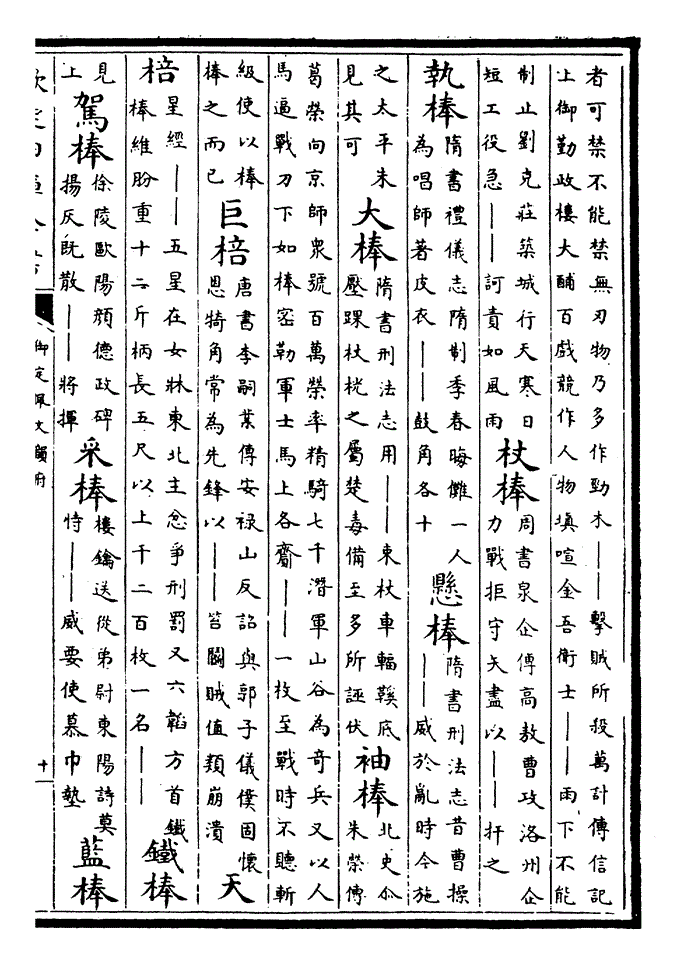 者可禁不能禁無刃物乃多作勁木——擊賊所殺萬計傳信記
上御勤政樓大酺百戲競作人物填喧金吾衛士——雨下不能
制止劉克莊築城行天寒日
短工役急——訶責如風雨
杖棒
周書泉企傳高敖曹攻洛州企
力戰拒守矢盡以——扞之
執棒
隋書禮儀志隋制季春晦儺一人
為唱師著皮衣——鼓角各十
懸棒
隋書刑法志昔曹操
——威於亂時今施
之太平朱
見其可
大棒
隋書刑法志用——束杖車輻鞵底
壓踝杖桄之屬楚毒備至多所誣伏
袖棒
北史尒
朱榮傳
葛榮向京師衆號百萬榮率精騎七千潛軍山谷為奇兵又以人
馬逼戰刀下如棒密勒軍士馬上各齎——一枚至戰時不聽斬
級使以棒
棒之而已
巨棓
唐書李嗣業傳安禄山反詔與郭子儀僕固懷
恩犄角常為先鋒以——笞鬭賊值類崩潰
天
棓
星經——五星在女牀東北主忿爭刑罰又六韜方首鐵
棒維肦重十二斤柄長五尺以上千二百枚一名——
鐵棒
見
上
駕棒
徐陵歐陽頠德政碑
揚灰既散——將揮
采棒
樓鑰送從弟尉東陽詩莫
恃——威要使慕巾墊
藍棒
御定佩文韻府
十